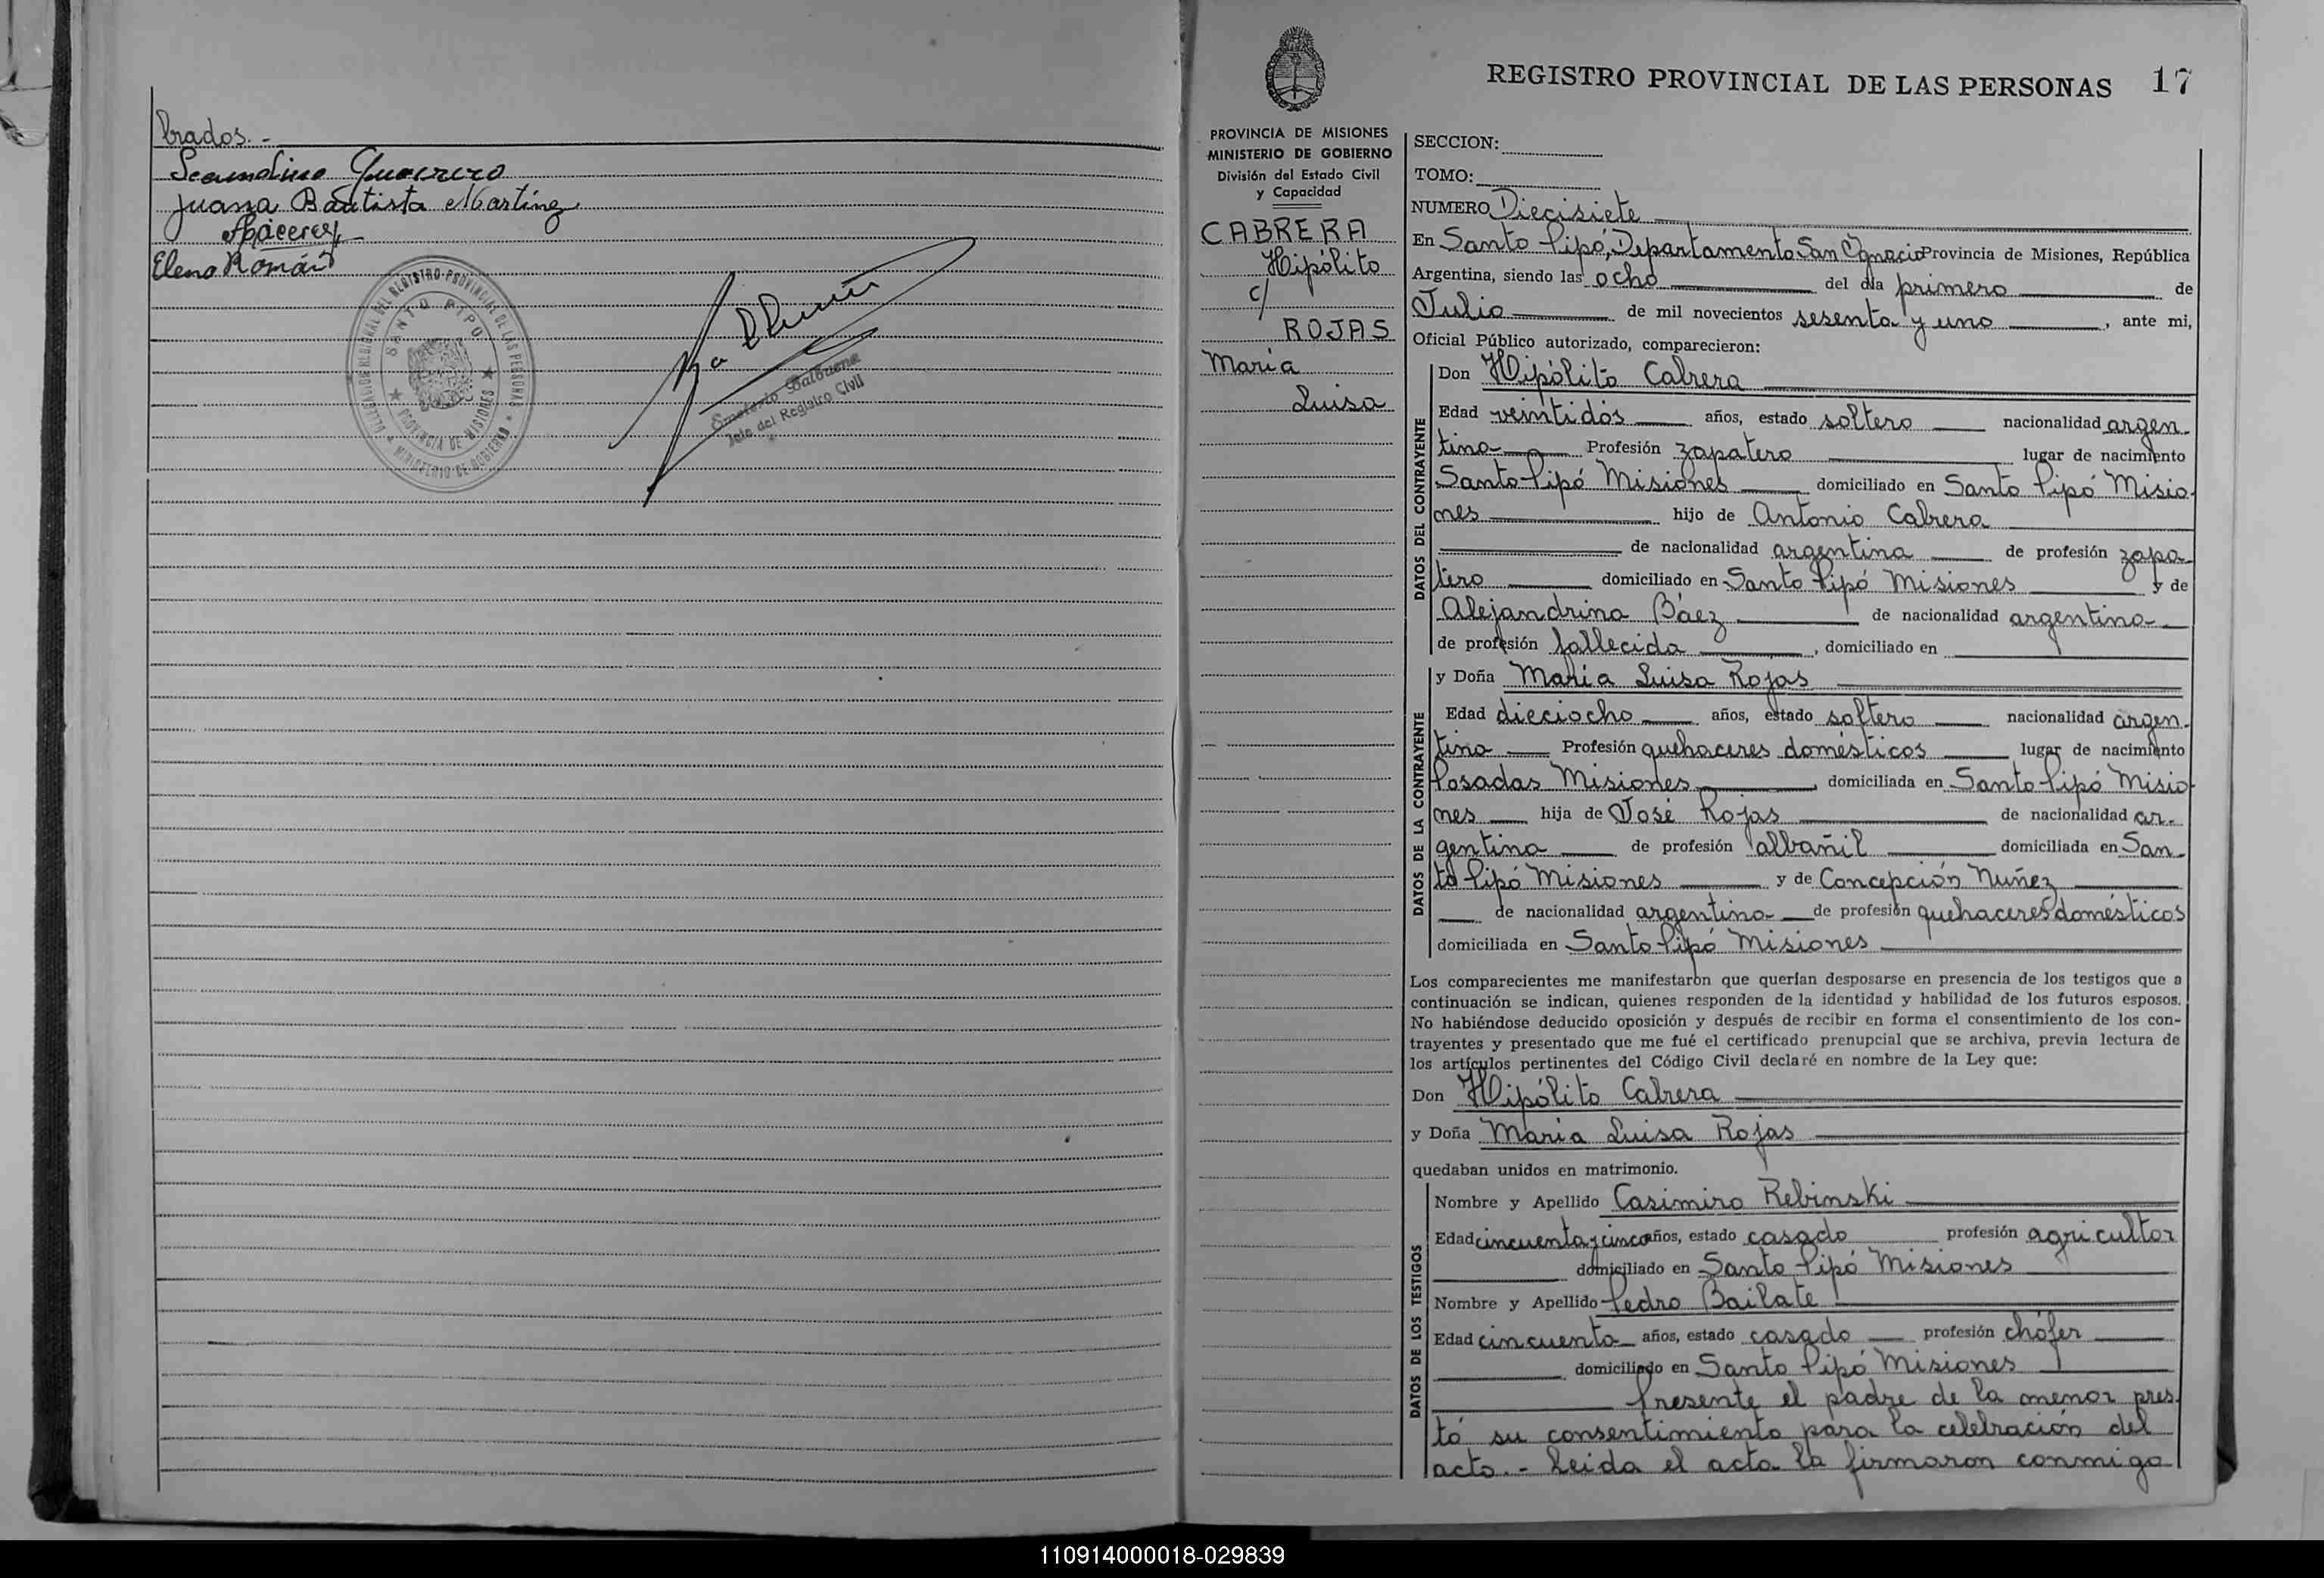 brados.-
Secundino Guerrero
Juana Bautista Martínez
Elena Román
DELEGACION REGIONAL DEL REGISTRO PROVINCIAL DE LAS PERSONAS
SANTO PIPO
PROVINCIA DE MISIONES
MINISTERIO DE GOBIERNO
Emeterio Balbuena
Jefe del Registro Civil
REGISTRO PROVINCIAL DE LAS PERSONAS 17
PROVINCIA DE MISIONES
MINISTERIO DE GOBIERNO
División del Estado Civil
y Capacidad
CABRERA
Hipólito
c/
ROJAS
María
Luisa
SECCION:
TOMO:
NUMERO Diecisiete
En Santo Pipó, Departamento San Ignacio Provincia de Misiones, República
Argentina, siendo las ocho del día primero de
Julio de mil novecientos sesenta y uno, ante mi,
Oficial Público autorizado, comparecieron:
DATOS DEL CONTRAYENTE
Don Hipólito Cabrera
Edad veintidós años, estado soltero nacionalidad argen-
tina Profesión zapatero lugar de nacimiento
Santo Pipó Misiones domiciliado en Santo Pipó Misio-
nes hijo de Antonio Cabrera
de nacionalidad argentina de profesión zapa-
tero domiciliado en Santo Pipó Misiones y de
Alejandrina Báez de nacionalidad argentina
de profesión fallecida, domiciliado en
DATOS DE LA CONTRAYENTE
y Doña María Luisa Rojas
Edad dieciocho años, estado soltera nacionalidad argen-
tina Profesión quehaceres domésticos lugar de nacimiento
Posadas Misiones, domiciliada en Santo Pipó Misio-
nes hija de José Rojas de nacionalidad ar-
gentina de profesión albañil domiciliada en San-
to Pipó Misiones y de Concepción Nuñez
de nacionalidad argentina de profesión quehaceres domésticos
domiciliada en Santo Pipó Misiones
Los comparecientes me manifestaron que querían desposarse en presencia de los testigos que a
continuación se indican, quienes responden de la identidad y habilidad de los futuros esposos.
No habiéndose deducido oposición y después de recibir en forma el consentimiento de los con-
trayentes y presentado que me fué el certificado prenupcial que se archiva, previa lectura de
los artículos pertinentes del Código Civil declaré en nombre de la Ley que:
Don Hipólito Cabrera
y Doña María Luisa Rojas
quedaban unidos en matrimonio.
DATOS DE LOS TESTIGOS
Nombre y Apellido Casimiro Rebinski
Edad cincuenta y cinco años, estado casado profesión agricultor
domiciliado en Santo Pipó Misiones
Nombre y Apellido Pedro Bailate
Edad cincuenta años, estado casado profesión chófer
domiciliado en Santo Pipó Misiones
Presente el padre de la menor pres-
tó su consentimiento para la celebración del
acto.- Leida el acta la firmaron conmigo
110914000018-029839